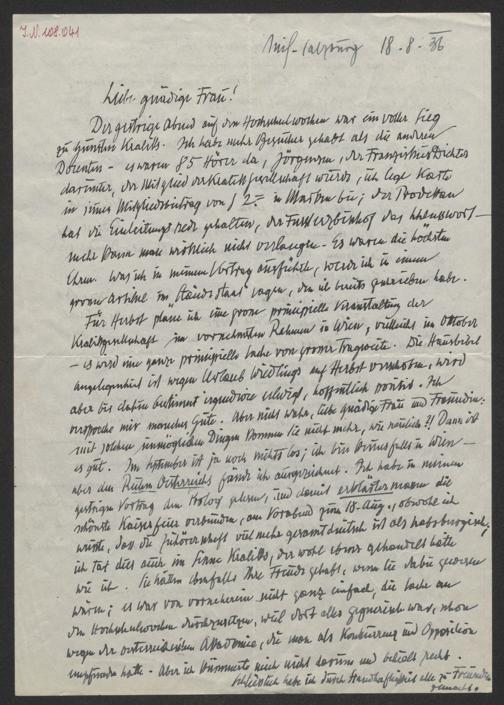 J.N. 108.041
Salzburg 18.8.36
Liebe gnädige Frau!
Der gestrige Abend auf den Hochschulwochen war ein voller Sieg
zu Gunsten Kraliks. Ich habe mehr Besucher gehabt als die anderen
Dozenten – es waren 85 Hörer da, Jörgensen, der Franziskusdichter
darunter, der Mitglied der Kralikgesellschaft wurde, ich lege Karte
in seinen Mitgliedsbeitrag von S 2.– in Marken bei; der Prodekan
hat die Einleitungsrede gehalten, der Fürsterzbischof das
mehr kann man wirklich nicht verlangen – Es waren die höchsten
Ehren. Was ich in meinem Vortrag ausführte, werde ich in einem
grossen Artikel im "Ständestaat" sagen, den ich bereits geschrieben habe.
Für Herbst plane ich eine grosse prinzipielle Veranstaltung der
Kralikgesellschaft im vornehmsten Rahmen in Wien, vielleicht im Oktober
– es wird eine ganze prinzipielle Sache von grosser Tragweite. Die
angelegenheit ist wegen Urlaub auf Herbst verschoben, wird
aber bis dahin bestimmt irgendwie erledigt, hoffentlich positiv. Ich
verspreche mir manches Gute. Aber nicht wahr, liebe gnädige Frau und Freundin:
mit solchen unmöglichen Dingen kommen Sie nicht mehr, wie neulich!! Dann ist
es gut. Im September ist ja noch nichts los; ich bin in Wien –
aber den Ruhm Österreichs fände ich ausgezeichnet. Ich habe in meinem
gestrigen Vortrag den Prolog gelesen, und damit erklärtermassen die
schönste Kaiserfeier verbunden, am Vorabend zum 18. Aug., obwohl ich
wusste, dass die Zuhörerschaft viel mehr gesamtdeutsch ist als habsburgisch;
ich tat dies auch im Sinne Kraliks, der wohl ebenso gehandelt hätte
wie ich. Sie hätten ebenfalls Ihre Freude gehabt, wenn Sie dabei gewesen
wären; es war von vorneherein nicht ganz einfach, die Sache an
den Hochschulwochen durchzusetzen, weil dort alles gegnerisch war, schon
wegen der österreichischen Akademie, die man als Konkurrenz und Opposition
empfunden hatte. – Aber ich kümmerte mich nicht darum und behielt recht.
Schliesslich habe ich durch Standhaftigkeit alle zu Freunden
gemacht.